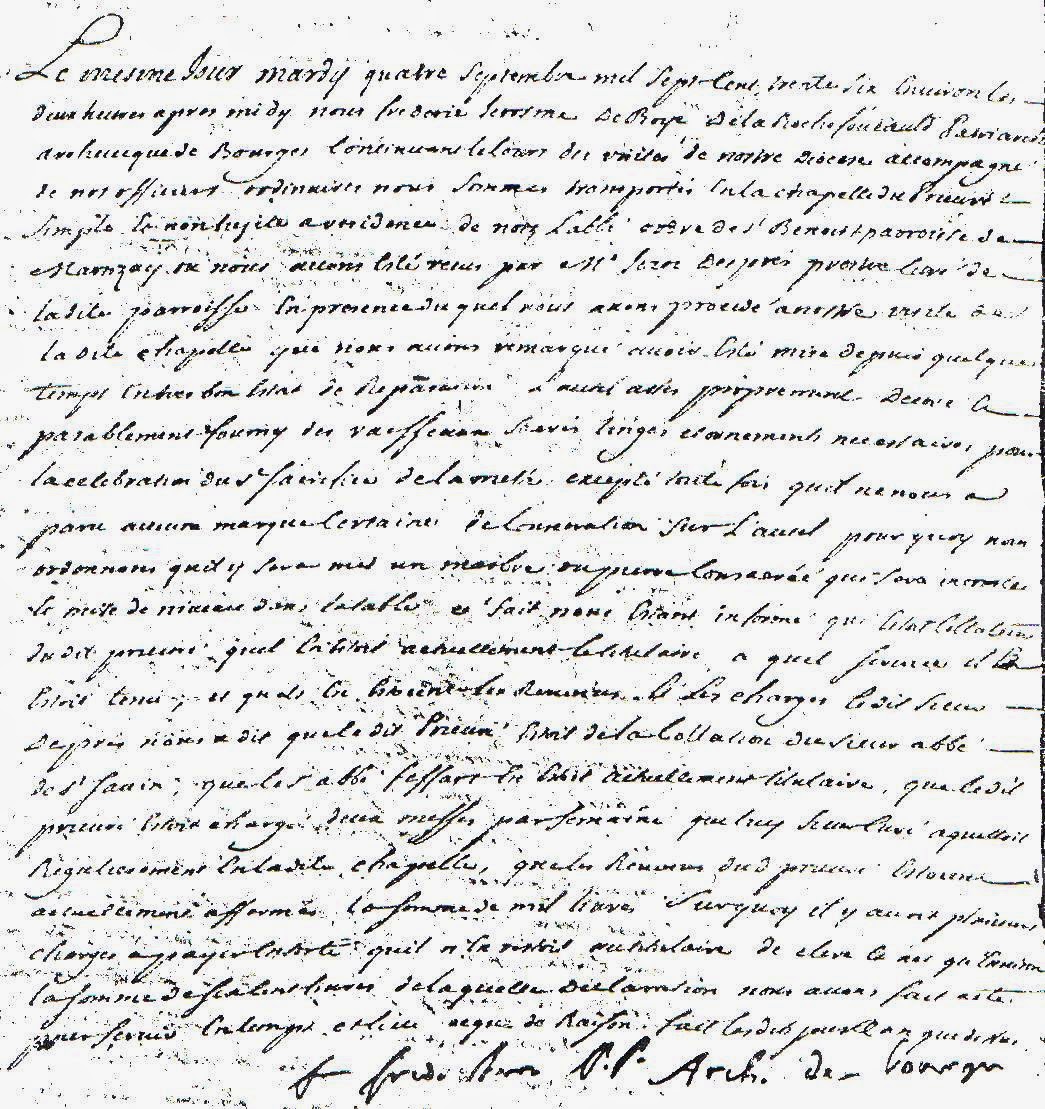 Le mesme jour mardy quatre septembre mil sept cent trente six environ les
deux heures apres midy nous frederic jerosme De Roye De la Rochefoucauld Patriarche
archevesque de Bourges continuant le cours des visites de nostre diocese accompagné
de nos officiers ordinaires nous sommes transportés en la chapelle du Prieuré
simple et non sujite a residence de l'abbé ordre de st Benoist parroisse de
Marnzay ou nous avons esté receus par Mr Despres prestre curé de
ladite parroisse en presence duquel nous avons procedé a nostre visite de
la dite chapelle que nous avons remarqué avoir esté mise depuis quelque
temps en tres bon estat de Reparation l'autel asses proprement decoré et
passablement fourny des vaisseaux sacrés linges et ornements necessaires pour
la celebration du st sacrifice de la messe excepté toute fois quil ne nous a
paru aucune marque certaine de consecration sur l'autel pourquoy nous
ordonnons quil y sera mis un marbre ou pierre consacrée qui sera incrustée
et mise de niveau dans la table ce fait nous estant informé qui estoit collateur
du dit prieuré quel en estoit actuellement le titulaire a quel service il
estoit tenu, et quels en estoient les Revenus et les charges ledit sieur
Desprès nous a dit que le dit Prieuré estoit de la collation du sieur abbé
de st savin, que le sr abbé estoit actuellement titulaire, que le dit
prieuré estoit chargé deux messes par semaine que luy sieur curé aquittoit
Regulierement en ladite chapelle, que les Revenus du d prieuré estoient
actuellement affermés la somme de mil livres surquoy il y avoit plusieurs
charges a payer en sorte quil n'en restoit au titulaire de clere et net qu'environ
la somme de livres de laquelle declaration nous avons fait acte
pour servir en temps et lieu ce que de Raison. fait lesdits jour et an que dessus
+ frede Jerome P.P. Arch. de Bourges